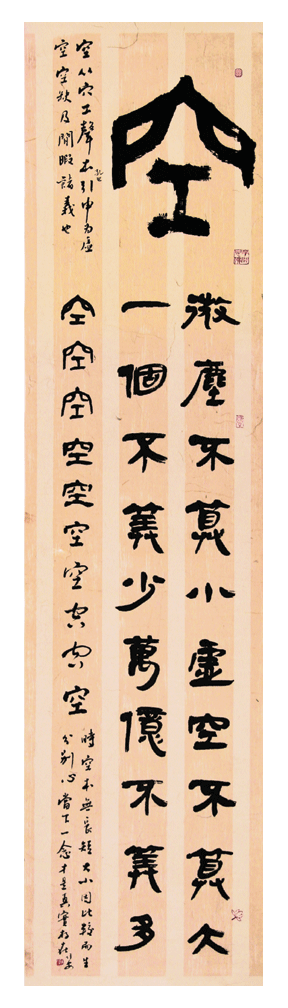 空
微塵不算小虛空不算大
一個不算少萬億不算多
空从穴工聲本孔也引申为虛
空空缺及閒暇諸義也
空空空空空空空空空空
時空本無長短大小因比較而生
分別心當下一念才是真實